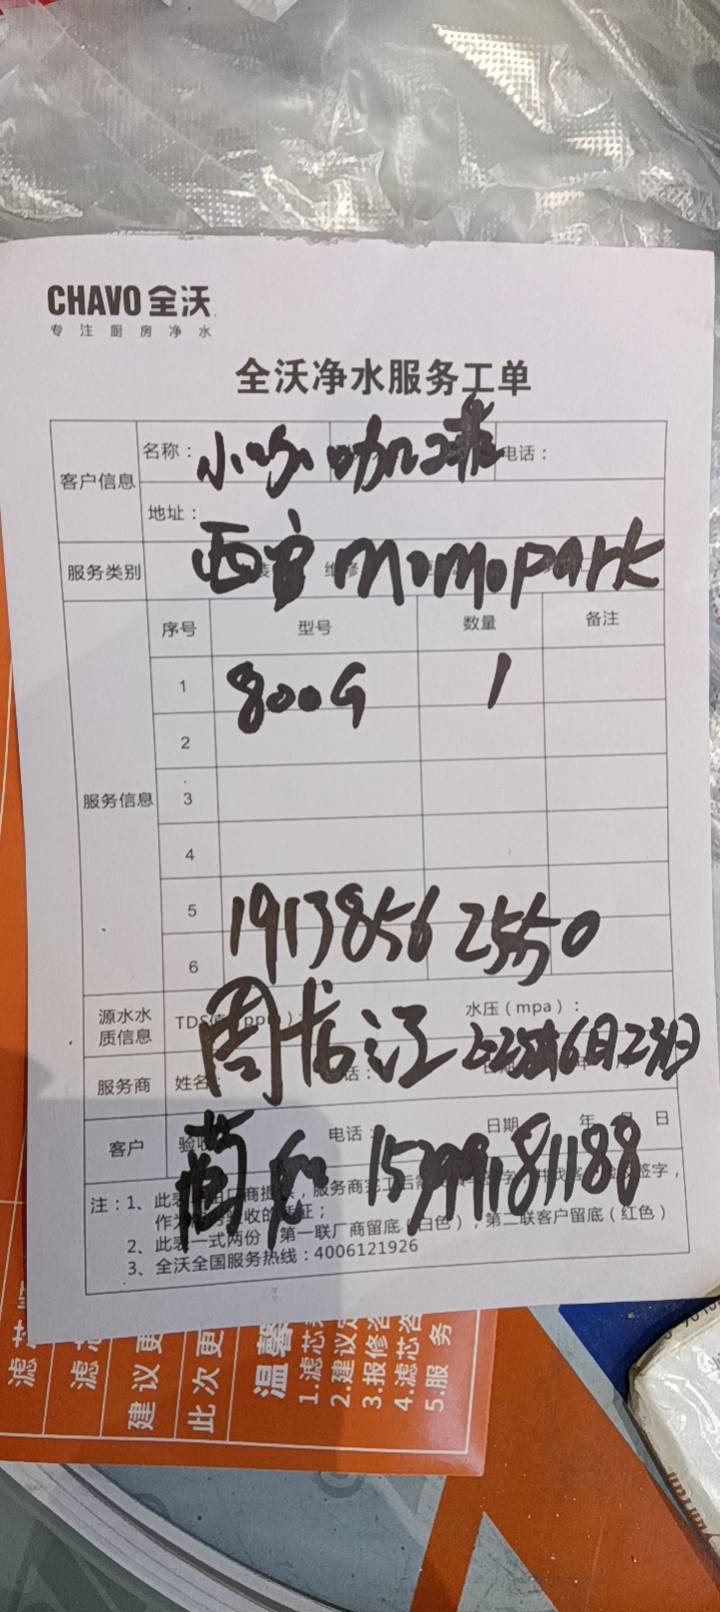 CHAVO 全沃
专注厨房净水
全沃净水服务工单
客户信息 名称： 小 咖啡 电话：
地址：
西安 momopark
服务类别 维修
服务信息 序号 型号 数量 备注
1 800G 1
2
3
4
5 19138562550
6
源水水质信息 TDS 水压（mpa）：
周龙江 2025年6月23日
服务商 姓名
客户 验收 电话： 日期 年 月 日
15399181188
注：1、此表 由厂商提供，服务商完工后需 签字，
作为 验收的凭证；
2、此表一式两份，第一联厂商留底（白色），第二联客户留底（红色）
3、全沃全国服务热线：4006121926
滤芯
滤芯
建议更
此次更
温馨
1.滤芯
2.建议定
3.报修咨
4.滤芯咨
5.服务